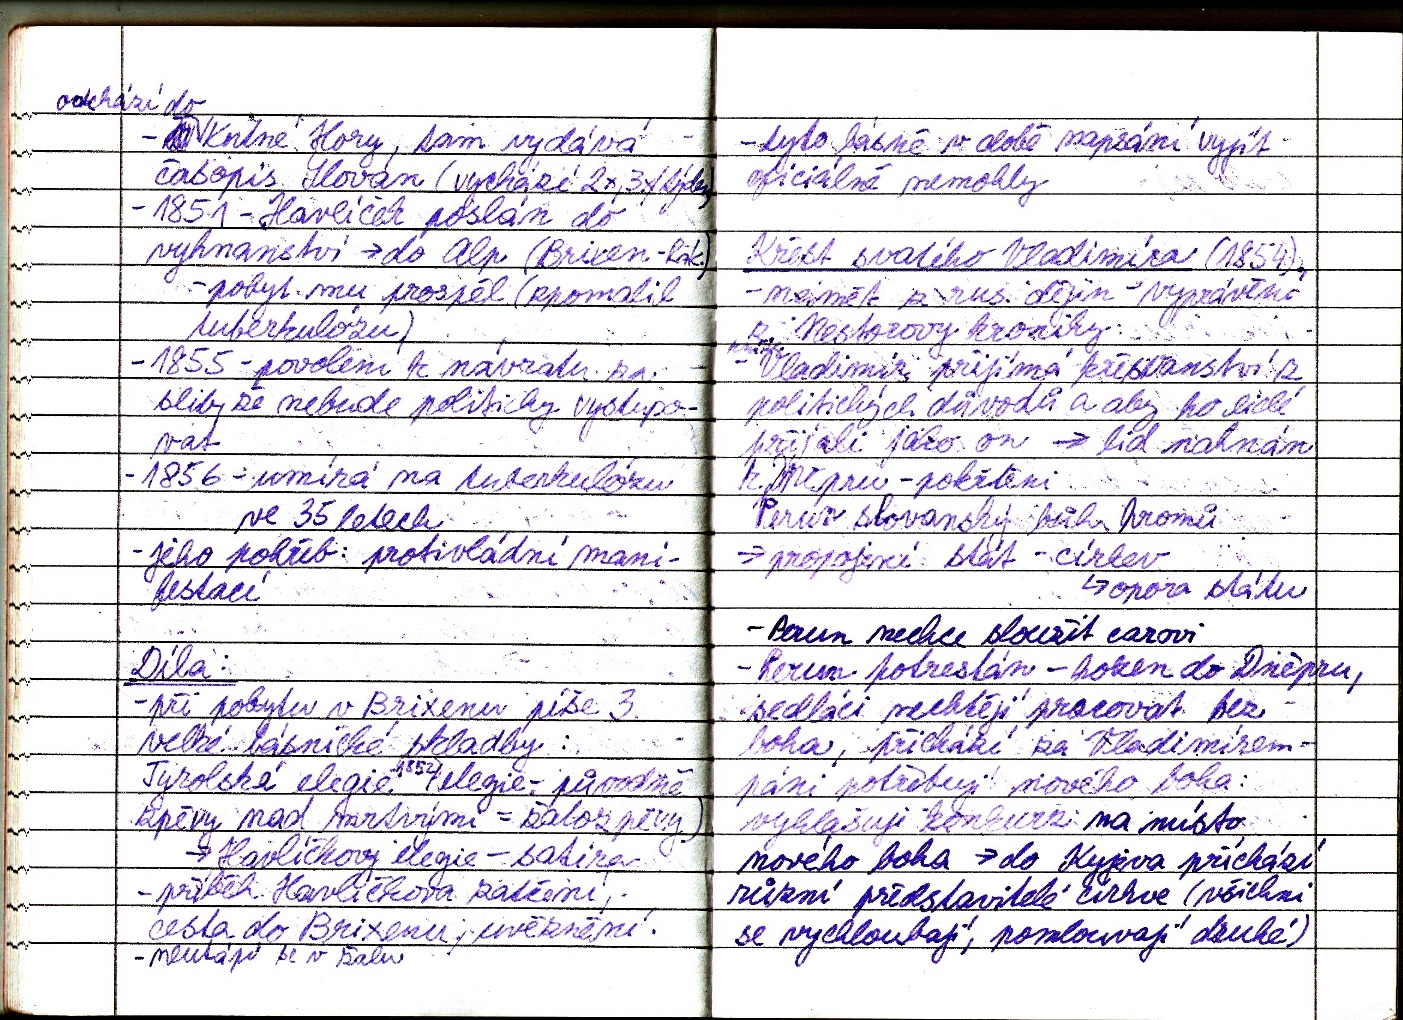 odchází do
- Kutné Hory, tam vydává
časopis Slovan (vychází 2x, 3x/týdny)
- 1851 - Havlíček poslán do
vyhnanství → do Alp (Brixen - Rak.)
- pobyt mu prospěl (zpomalil
tuberkulózu)
- 1855 - povolení k návratu za
sliby že nebude politicky vystupo-
vat
- 1856 - umírá na tuberkulózu
ve 35 letech
- jeho pohřeb: protivládní mani-
festací
Díla:
- při pobytu v Brixenu píše 3
velké básnické skladby:
Tyrolské elegie 1852 (elegie - původně
zpěvy nad mrtvými = žalozpěvy)
→ Havlíčkovy elegie - satira
- příběh Havlíčkova zatčení,
cesta do Brixenu, uvěznění.
- neutápí se v žalu
- tyto básně v době napsání vyjít
oficiálně nemohly
Křest svatého Vladimíra (1854)
- námět z rus. dějin - vyprávění
z Nestorovy kroniky
- Vladimír přijímá křesťanství z
politických důvodů a aby ho lidé
přijali jako on → lid nahnán
k Dněpru - pokřtěni
Perun slovanský bůh hromů
→ propojení stát - církev
↳ opora státu
- Perun nechce sloužit carovi
- Perun potrestán - hozen do Dněpru,
sedláci nechtějí pracovat bez
boha, přichází za Vladimírem -
páni potřebují nového boha:
vyhlašují konkurz na místo
nového boha → do Kyjeva přichází
různí představitelé církve (všichni
se vychloubají, pomlouvají druhé)